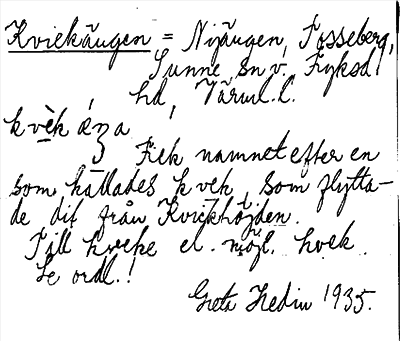 Kvickängen = Nyängen, Fosseberg,
Sunne sn v. Fryksd.
hd, Värml. l.
kvèk áŋa
Fick namnet efter en
som kallades kvek, som flytta-
de dit från Kvickhöjden.
Till kveke el. möjl. kvek.
Se ordl.!
Greta Hedin 1935.